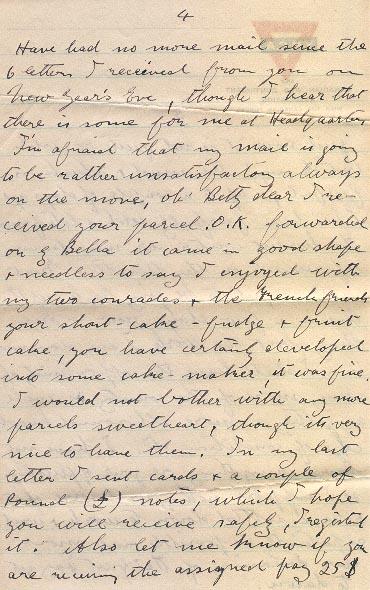 4
Have had no more mail since the
6 letters I received from you on
New Year's Eve, though I hear that
there is some for me at Headquarters
I'm afraid that my mail is going
to be rather unsatisfactory always
on the move, oh' Betty dear I re-
ceived your parcel O.K. forwarded
on by Bella it came in good shape
+ needless to say I enjoyed with
my two comrades + the French friends
your short-cake - fudge + fruit
cake, you have certainly developed
into some cake-maker, it was fine.
I would not bother with any more
parcels sweetheart, though its very
nice to have them. In my last
letter I sent cards + a couple of
Pound (£) notes, which I hope
you will receive safely, I registed
it. Also let me know if you
are receiving the assigned pay 25$